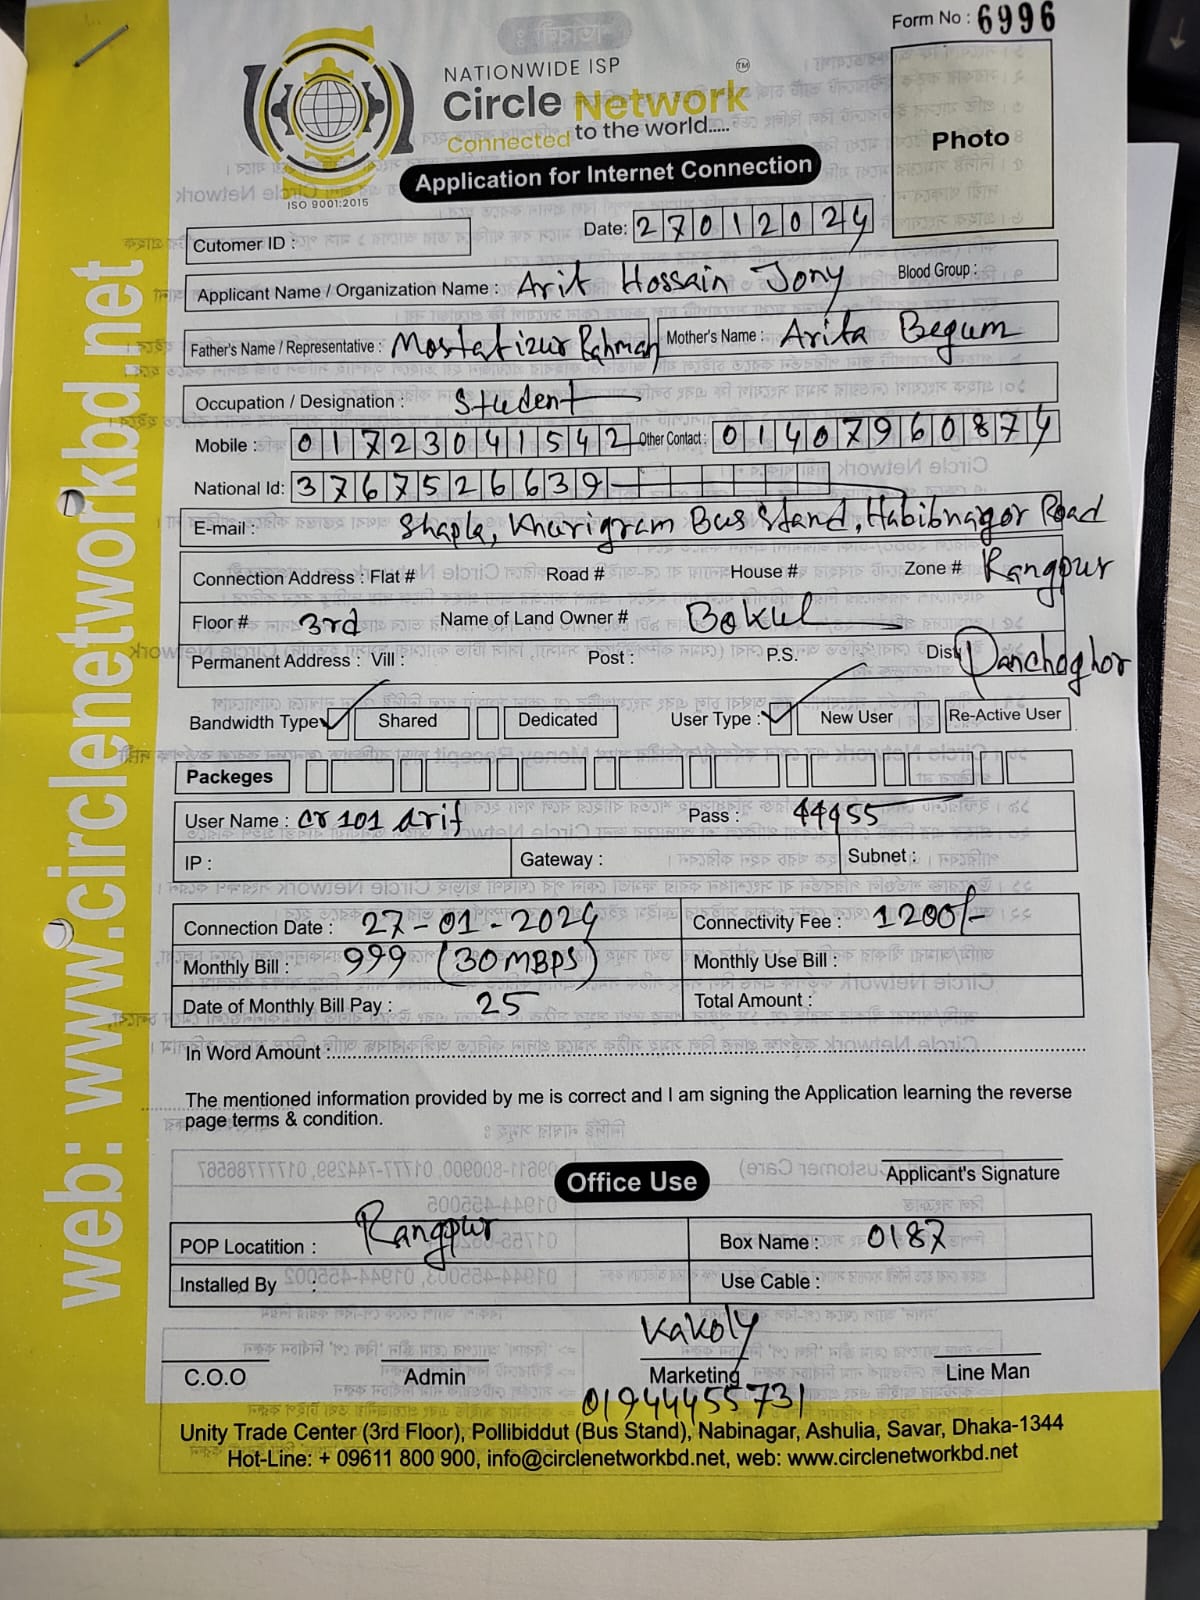 Form No : 6996
NATIONWIDE ISP
Circle Network TM
Connected to the world.....
ISO 9001:2015
Application for Internet Connection
Photo
Date: 27012024
Cutomer ID :
Applicant Name / Organization Name : Arif Hossain Jony Blood Group :
Father's Name / Representative : Mostafizur Rahman Mother's Name : Arifa Begum
Occupation / Designation : Student
Mobile : 01723041542 Other Contact : 01407960874
National Id: 3767526639
E-mail : Shapla, Khurigram Bus Stand, Habibnagor Road
Connection Address : Flat # Road # House # Zone # Rangpur
Floor # 3rd Name of Land Owner # Bokul
Permanent Address : Vill : Post : P.S. Dist Panchaghor
Bandwidth Type Shared Dedicated User Type : New User Re-Active User
Packeges
User Name : cr101 arif Pass : 44455
IP : Gateway : Subnet :
Connection Date : 27-01-2024 Connectivity Fee : 1200/-
Monthly Bill : 999 (30MBPS) Monthly Use Bill :
Date of Monthly Bill Pay : 25 Total Amount :
In Word Amount :
The mentioned information provided by me is correct and I am signing the Application learning the reverse
page terms & condition.
Applicant's Signature
Office Use
POP Locatition : Rangpur Box Name : 0187
Installed By : Use Cable :
Kakoly
C.O.O Admin Marketing Line Man
01944455731
Unity Trade Center (3rd Floor), Pollibiddut (Bus Stand), Nabinagar, Ashulia, Savar, Dhaka-1344
Hot-Line: + 09611 800 900, info@circlenetworkbd.net, web: www.circlenetworkbd.net
web: www.circlenetworkbd.net